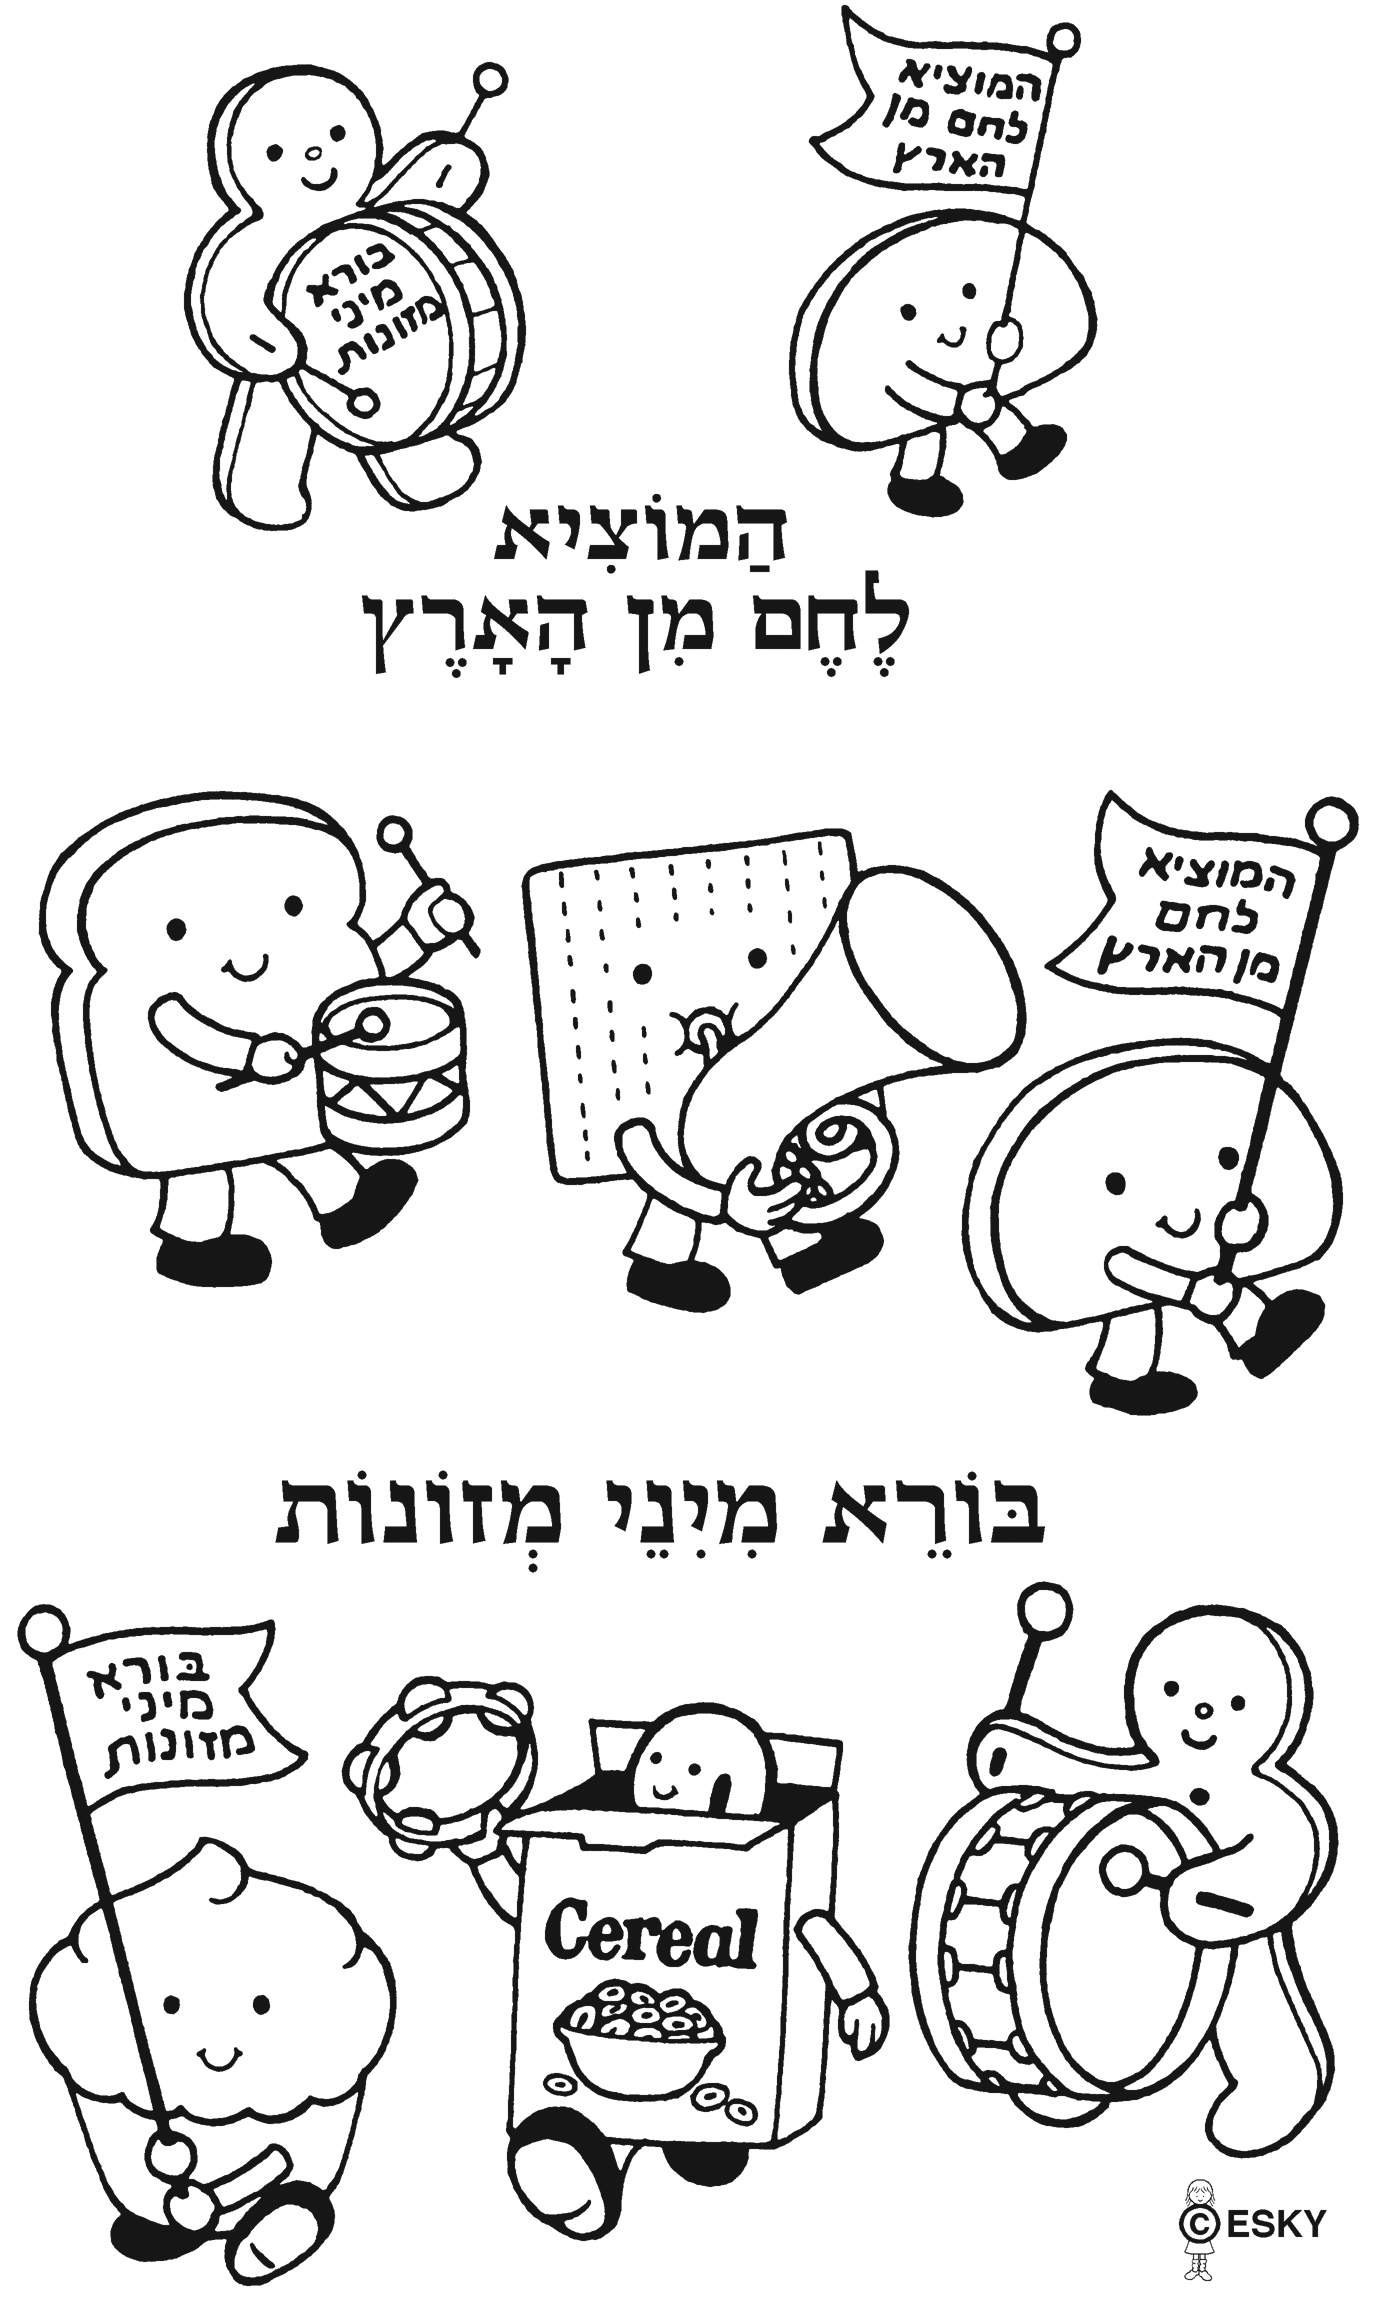 המוציא
לחם מן
הארץ
בורא
מיני
מזונות
הַמוֹצִיא
לֶחֶם מִן הָאָרֶץ
המוציא
לחם
מן הארץ
בּוֹרֵא מִיִנֵי מְזוֹנוֹת
בּורא
מיני
מזונות
Cereal
© ESKY